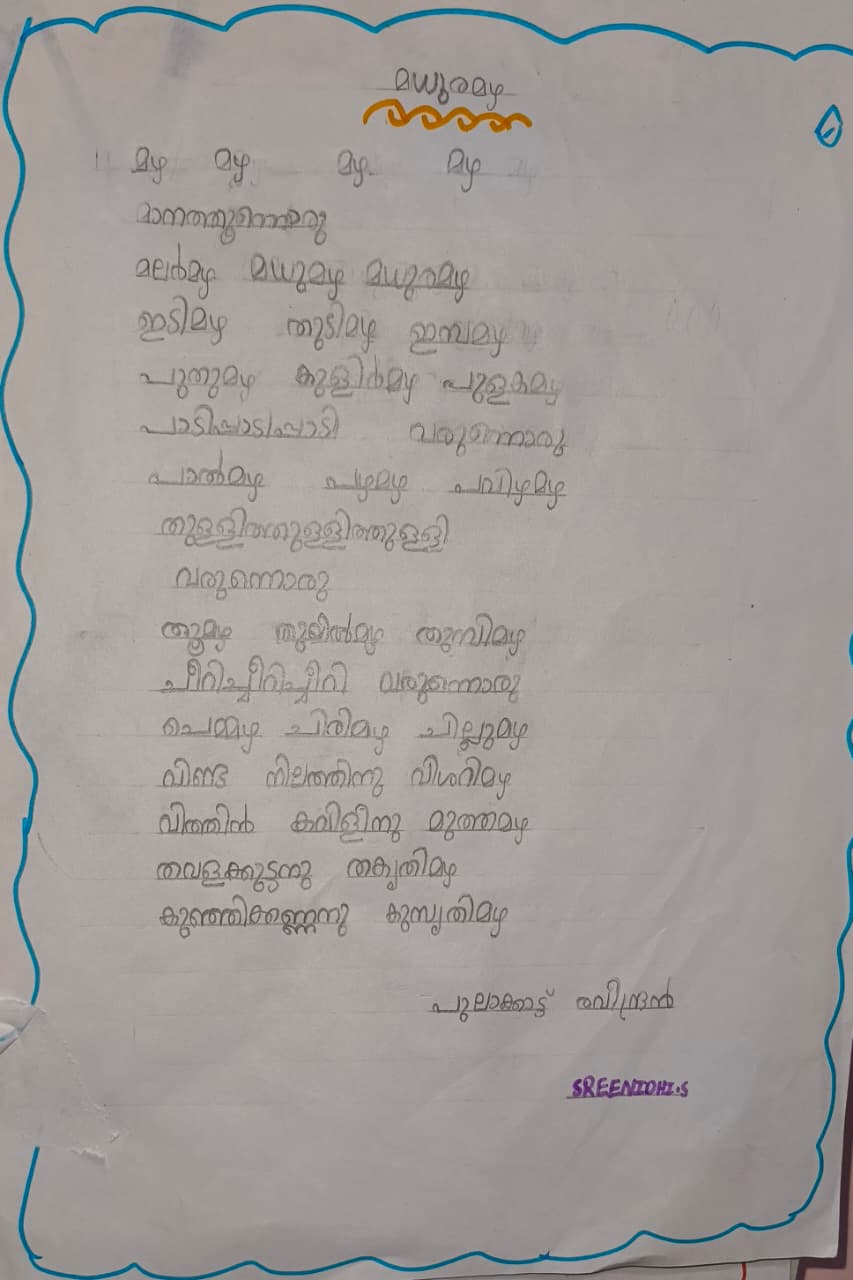 മധുരമഴ
മഴ മഴ മഴ മഴ
മാനത്തൂന്നൊരു
മലർമഴ മധുമഴ മധുരമഴ
ഇടിമഴ തുടിമഴ ഇമ്പമഴ
പുതുമഴ കുളിർമഴ പുളകമഴ
പാടിപ്പാടിപ്പാടി വരുന്നൊരു
പാൽമഴ പഴമഴ പവിഴമഴ
തുള്ളിത്തുള്ളിത്തുള്ളി
വരുന്നൊരു
തൂമഴ തുലിൽമഴ തുമ്പിമഴ
ചീറിച്ചീറിച്ചീറി വരുന്നൊരു
ചെമ്മഴ ചിരിമഴ ചില്ലുമഴ
വിണ്ട നിലത്തിനു വിശറിമഴ
വിത്തിൻ കവിളിനു മുത്തമഴ
തവളക്കുട്ടനു തകൃതിമഴ
കുഞ്ഞിക്കണ്ണനു കുസൃതിമഴ
പുലാക്കാട്ട് രവീന്ദ്രൻ
SREENIDHI.S